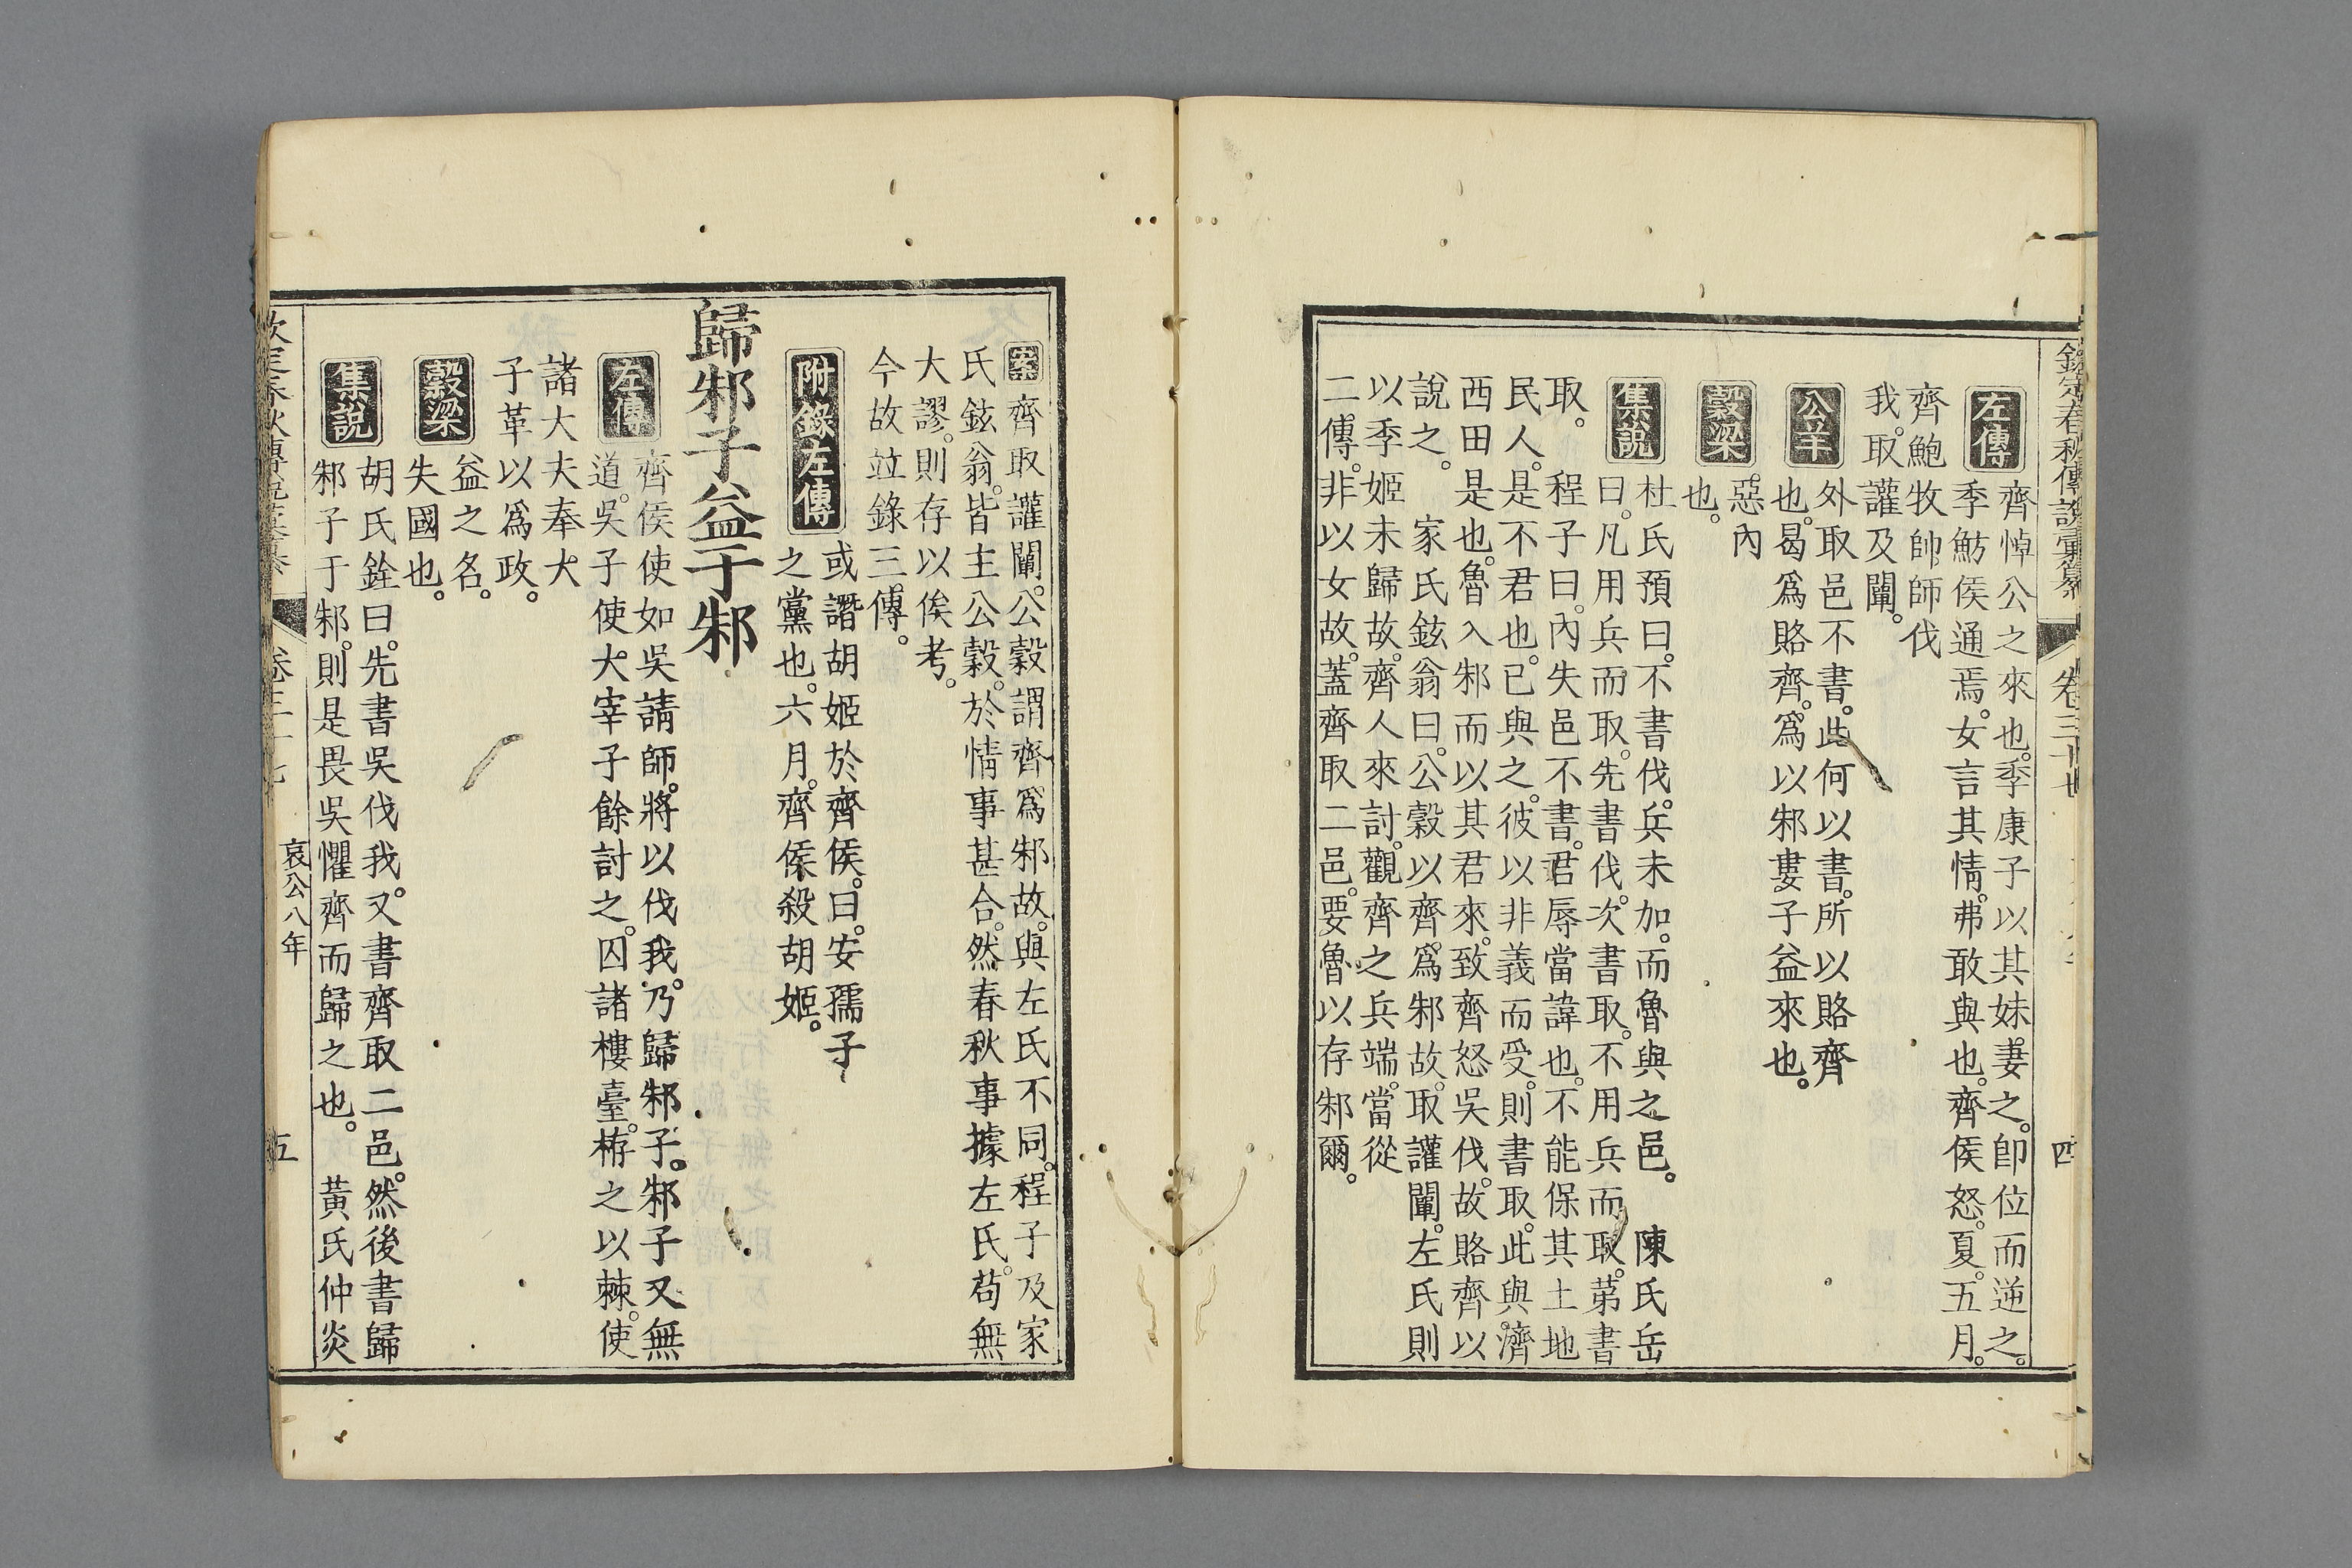 欽定春秋傳說彙纂 卷三十七 四
左傳
齊悼公之來也。季康子以其妹妻之。卽位而逆之。
季魴侯通焉。女言其情。弗敢與也。齊侯怒。夏。五月。
齊鮑牧帥師伐
我。取讙及闡。
公羊
外取邑不書。此何以書。所以賂齊
也。曷爲賂齊。爲以邾婁子益來也。
穀梁
惡內
也。
集說
杜氏預曰。不書伐。兵未加。而魯與之邑。 陳氏岳
曰。凡用兵而取。先書伐。次書取。不用兵而取。苐書
取。 程子曰。內失邑不書。君辱當諱也。不能保其土地
民人。是不君也。已與之。彼以非義而受。則書取。此與。濟
西田是也。魯入邾而以其君來。致齊怒吳伐。故賂齊以
說之。 家氏鉉翁曰。公穀以齊爲邾故。取讙闡。左氏則
以季姬未歸故。齊人來討。觀齊之兵端。當從
二傳。非以女故。蓋齊取二邑。要魯以存邾爾。
案
齊取讙闡。公穀謂齊爲邾故。與左氏不同。程子及家
氏鉉翁。皆主公穀。於情事甚合。然春秋事據左氏。苟無
大謬。則存以俟考。
今故竝錄三傳。
附錄左傳
或譖胡姬於齊侯。曰。安孺子
之黨也。六月。齊侯殺胡姬。
歸邾子益于邾
左傳
齊侯使如吳請師。將以伐我。乃歸邾子。邾子又無
道。吳子使大宰子餘討之。囚諸樓臺。栫之以棘。使
諸大夫奉大
子革以爲政。
穀梁
益之名。
失國也。
集說
胡氏銓曰。先書吳伐我。又書齊取二邑。然後書歸
邾子于邾。則是畏吳懼齊而歸之也。 黃氏仲炎
欽定春秋傳說彙纂 卷三十七 哀公八年 五